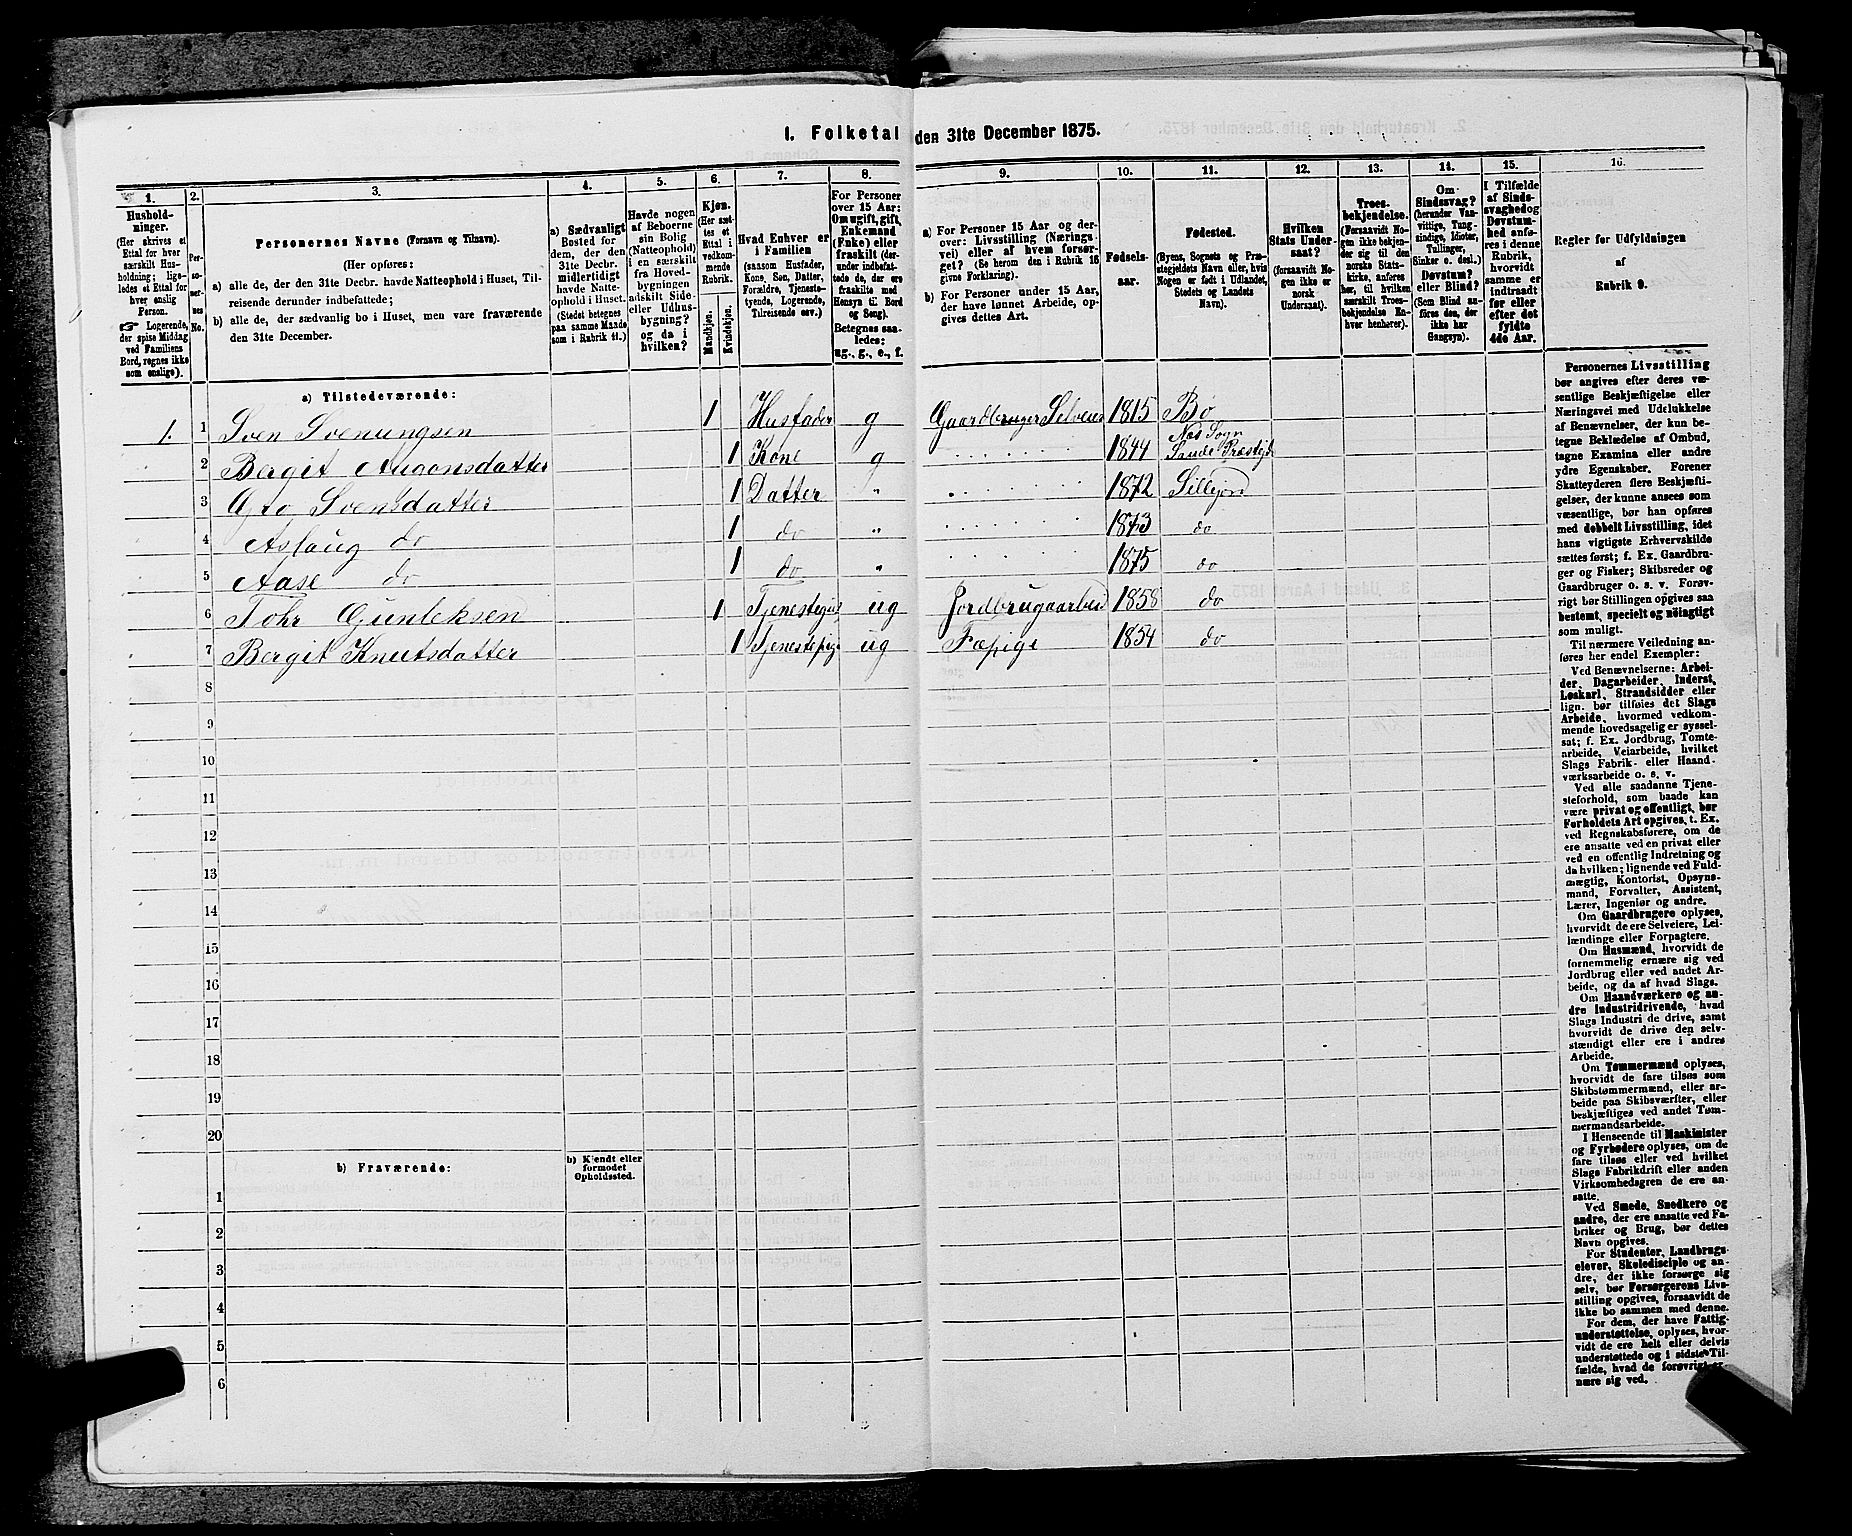 1. Folketal den 31te December 1875.
1.
Hushold-
ninger.
(Her skrives et
Ettal for hver
særskilt Hus-
holdning; lige-
ledes et Ettal for
hver enslig
Person.
☞ Logerende,
der spise Middag
ved Familiens
Bord, regnes ikke
som enslige).
2.
Per-
so-
ner-
nes
No.
3.
Personernes Navne (Fornavn og Tilnavn).
(Her opføres:
a) alle de, der den 31te Decbr. havde Natteophold i Huset, Til-
reisende derunder indbefattede;
b) alle de, der sædvanlig bo i Huset, men vare fraværende
den 31te December.
4.
a) Sædvanligt
Bosted for
dem, der den
31te Decbr.
midlertidigt
havde Natte-
ophold i Huset.
(Stedet betegnes
paa samme Maade
som i Rubrik 11.)
5.
Havde nogen
af Beboerne
sin Bolig
(Natteophold)
i en særskilt
fra Hoved-
bygningen
adskilt Side-
eller Udhus-
bygning?
og da i
hvilken?
6.
Kjøn.
(Her sæt-
tes et
Ettal i
vedkom-
mende
Rubrik.
Mandkjøn.
Kvindekjøn.
7.
Hvad Enhver er
i Familien
(saasom Husfader,
Kone, Søn, Datter,
Forældre, Tjeneste-
tyende, Logerende,
Tilreisende osv.)
8.
For Personer
over 15 Aar:
Om ugift, gift,
Enkemand
(Enke) eller
fraskilt (der-
under indbefat-
tede de, der ere
fraskilte med
Hensyn til Bord
og Seng).
Betegnes saa-
ledes:
ug., g., e., f.
9.
a) For Personer 15 Aar og der-
over: Livsstilling (Nærings-
vei) eller af hvem forsør-
get? (Se herom den i Rubrik 16
givne Forklaring).
b) For Personer under 15 Aar,
der have lønnet Arbeide, op-
gives dettes Art.
10.
Fødsels-
aar.
11.
Fødested.
(Byens, Sognets og Præ-
stegjeldets Navn eller, hvis
Nogen er født i Udlandet,
Stedets og Landets
Navn).
12.
Hvilken
Stats Under-
saat?
(forsaavidt No-
gen ikke er
norsk
Undersaat).
13.
Troes-
bekjendelse.
(Forsaavidt No-
gen ikke bekjen-
der sig til den
norske Stats-
kirke, anføres
her, til hvilken
særskilt Troes-
bekjendelse En-
hver henhører).
14.
Om
Sindssvag?
(herunder Van-
vittige, Tung-
sindige, Idioter,
Tullinger,
Sinker o. desl.)
Døvstum?
eller Blind?
(Som Blind an-
føres den, der
ikke har
Gangsyn).
15.
I Tilfælde
af Sinds-
svaghed og
Døvstum-
hed anfø-
res i denne
Rubrik,
hvorvidt
samme er
indtraadt
før eller
efter det
fyldte
4de Aar.
16.
Regler for Udfyldningen
af
Rubrik 9.
a) Tilstedeværende:
1. 1 Sven Svenungsen 1 Husfader g Gaardbruger Selveier 1815 Bø
2 Bergit Augonsdatter 1 Kone g 1844 Næs Sogn Saude Præstgj
3 Gro Svensdatter 1 Datter " 1872 Sillejord
4 Aslaug do 1 do " 1873 do
5 Aase do 1 do " 1875 do
6 Tohr Gunleksen 1 Tjenestegut ug Jordbrugaarbeid 1858 do
7 Bergit Knutsdatter 1 Tjenestepige ug Fæpige 1854 do
8
9
10
11
12
13
14
15
16
17
18
19
20
b) Fraværende:
b) Kjendt eller
formodet
Opholdssted.
1
2
3
4
5
6
Personernes Livsstilling
bør angives efter deres væ-
sentlige Beskjæftigelse eller
Næringsvei med Udelukkelse
af Benævnelser, der kun be-
tegne Beklædelse af Ombud,
tagne Examina eller andre
ydre Egenskaber. Forener
Skatteyderen flere Beskjæfti-
gelser, der kunne ansees som
væsentlige, bør han opføres
med dobbelt Livsstilling, idet
hans vigtigste Erhvervskilde
sættes først; f. Ex. Gaardbru-
ger og Fisker; Skibsreder og
Gaardbruger o. s. v. Forøv-
rigt bør Stillingen opgives saa
bestemt, specielt og nöiagtigt
som muligt.
Til nærmere Veiledning an-
føres her endel Exempler:
Ved Benævnelserne: Arbei-
der, Dagarbeider, Inderst,
Løskarl, Strandsidder eller
lign. bør tilføies det Slags
Arbeide, hvormed vedkom-
mende hovedsagelig er syssel-
sat; f. Ex. Jordbrug, Tomte-
arbeide, Veiarbeide, hvilket
Slags Fabrik- eller Haand-
værksarbeide o. s. v.
Ved alle saadanne Tjene-
steforhold, som baade kan
være privat og offentligt, bør
Forholdets Art opgives, t. Ex.
ved Regnskabsførere, om de
ere ansatte ved en privat eller
ved en offentlig Indretning og
da hvilken; lignende ved Fuld-
mægtig, Kontorist, Opsyns-
mand, Forvalter, Assistent,
Lærer, Ingeniør og andre.
Om Gaardbrugere oplyses,
hvorvidt de ere Selveiere, Lei-
lændinge eller Forpagtere.
Om Husmænd, hvorvidt de
fornemmelig ernære sig ved
Jordbrug eller ved andet Ar-
beide, og da af hvad Slags.
Om Haandværkere og an-
dre Industridrivende, hvad
Slags Industri de drive, samt
hvorvidt de drive den selv-
stændigt eller ere i andres
Arbeide.
Om Tømmermænd oplyses,
hvorvidt de fare tilsøs som
Skibstømmermænd, eller ar-
beide paa Skibsværfter, eller
beskjæftiges ved andet Tøm-
mermandsarbeide.
I Henseende til Maskinister
og Fyrbødere oplyses, om de
fare tilsøs eller ved hvilket
Slags Fabrikdrift eller anden
Virksomhedsgren de ere an-
satte.
Ved Smede, Snedkere og
andre, der ere ansatte ved Fa-
briker og Brug, bør dettes
Navn opgives.
For Studenter, Landbrugs-
elever, Skoledisciple og an-
dre, der ikke forsørge sig
selv, bør Forsørgerens Livs-
stilling opgives, forsaavidt de
ikke bo sammen med denne.
For dem, der have Fattig-
understøttelse, oplyses, hvor-
vidt de ere helt eller delvis
understøttede og i sidste Til-
fælde, hvad de forøvrigt er-
nære sig ved.